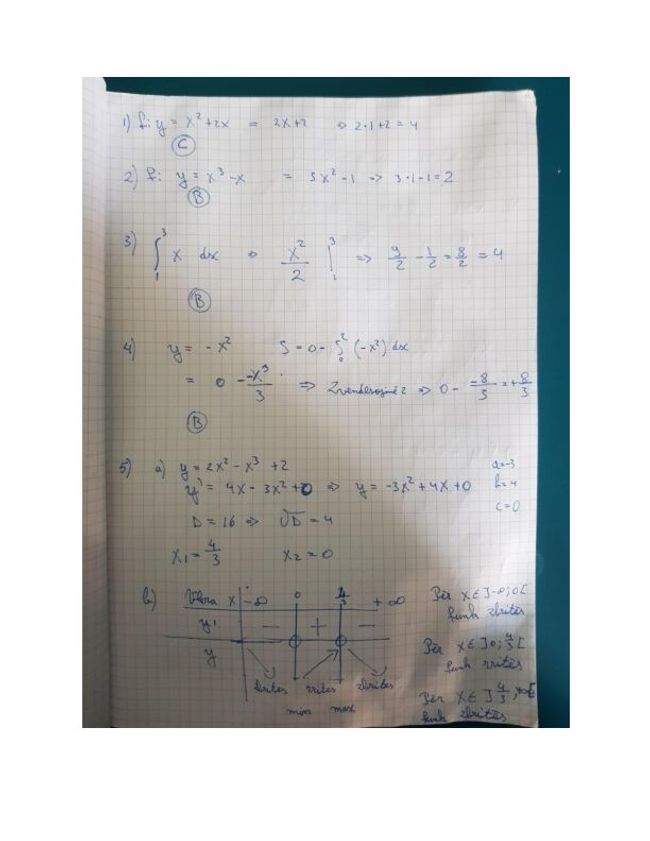 1) f: y = x² + 2x = 2x+2 ⇒ 2·1+2 = 4
C
2) f: y = x³ - x = 3x² - 1 ⇒ 3·1-1 = 2
B
3) ∫₁³ x dx ⇒ x²/2 |₁³ ⇒ 9/2 - 1/2 = 8/2 = 4
B
4) y = - x² S = 0 - ∫₀² (-x²) dx
= 0 - -x³/3 ⇒ Zvendesojmë 2 ⇒ 0 - -8/3 = +8/3
B
5) a) y = 2x² - x³ + 2
y' = 4x - 3x² + 0 ⇒ y = -3x² + 4x + 0
a=-3
b=4
c=0
D = 16 ⇒ √D = 4
x₁ = 4/3 x₂ = 0
b) Vlera x -∞ 0 4/3 +∞
y' - + -
y
zbritës rritës zbritës
min max
Për x ∈ ]-∞; 0[
funk zbritës
Për x ∈ ]0; 4/3[
funk rritës
Për x ∈ ]4/3; +∞[
funk zbritës